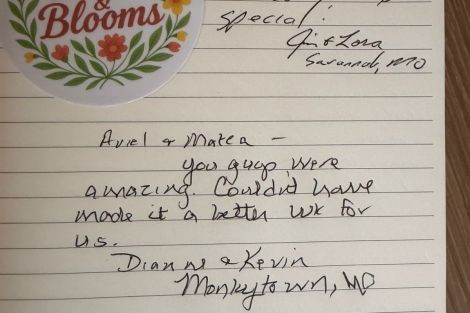 &
Blooms
special!
Jim & Lora
Savannah, MO
Ariel & Matea —
you guys were
amazing. Couldn't have
made it a better wk for
us.
Dianne & Kevin
Monkytown, MD